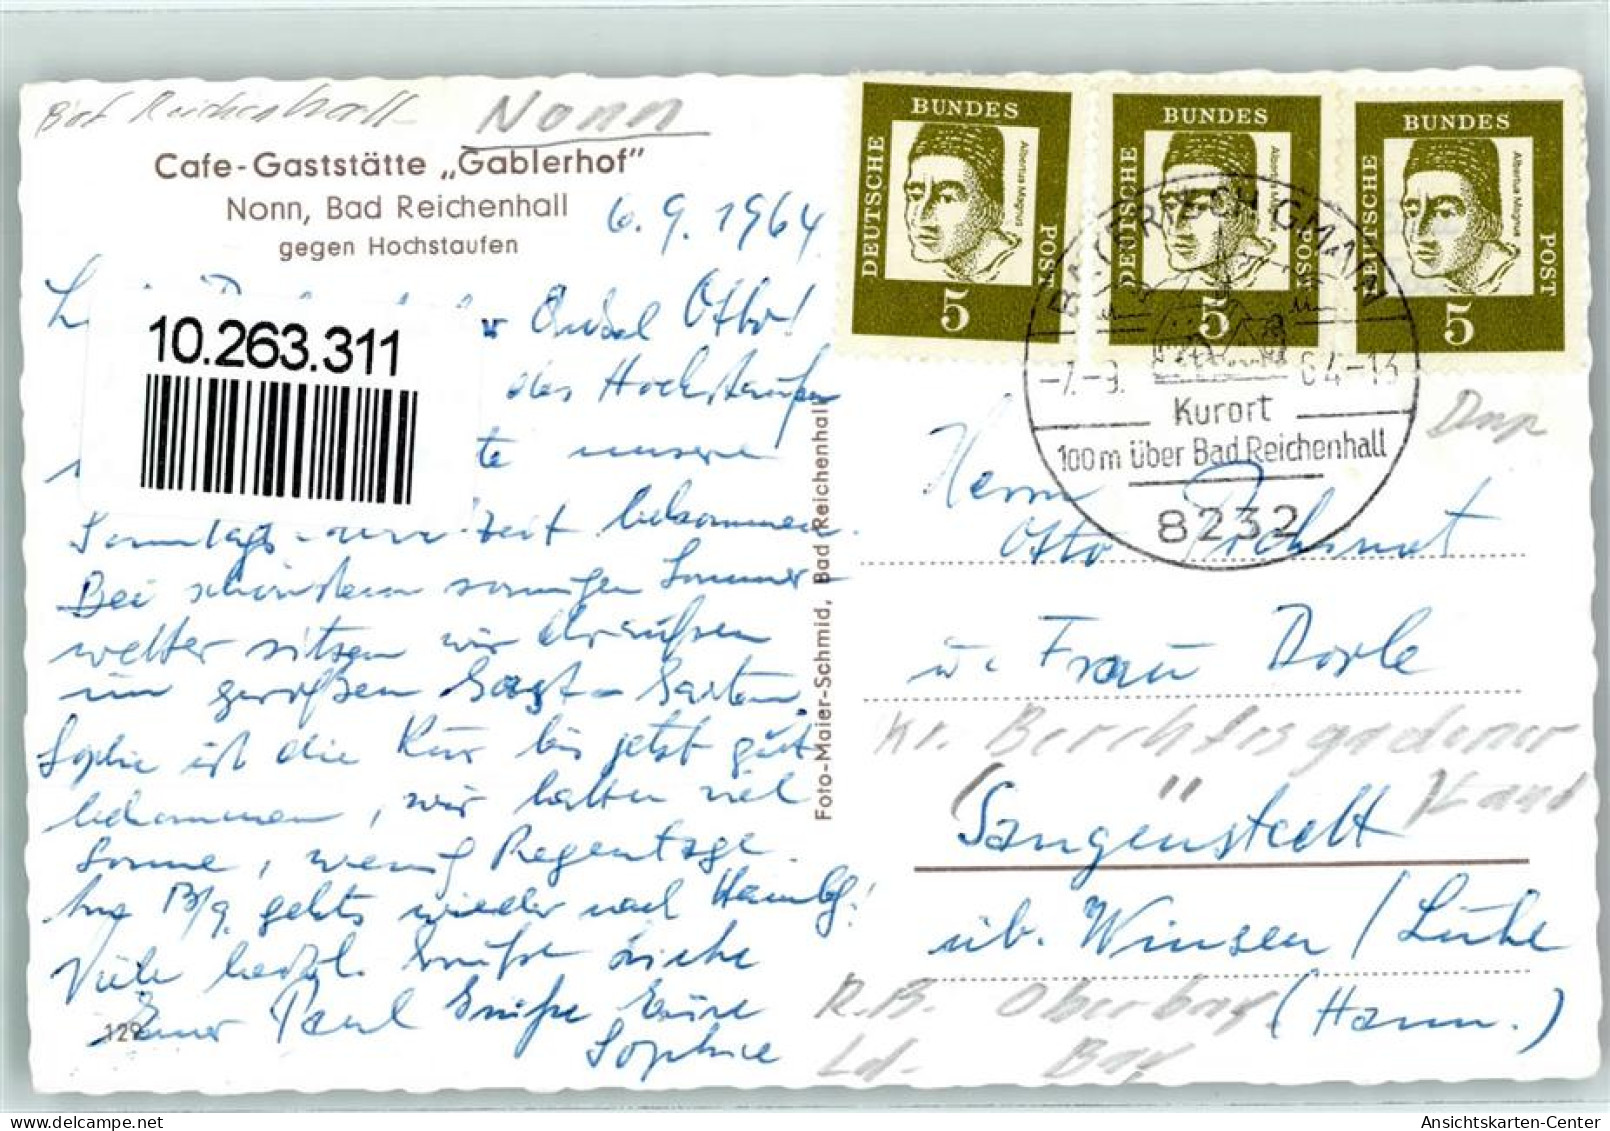 Bad Reichenhall
Nonn
Cafe-Gaststätte „Gablerhof"
Nonn, Bad Reichenhall
gegen Hochstaufen
6.9.1964
Onkel Otto!
10.263.311
des Hochstaufen
unsere
Sonntags- bekommen.
Bei schönstem sonnigen Sommer-
wetter sitzen wir draußen
im großen Gast-Garten.
Sophie ist die Kur bis jetzt gut
bekommen, wir hatten viel
Sonne, wenig Regentage.
Am 13/9. gehts wieder nach Hambg!
Viele herzl. Grüße Liebe
Euer Paul Grüße Eure
Sophie
129
Foto-Maier-Schmid, Bad Reichenhall
DEUTSCHE BUNDES POST
Albertus Magnus
5
DEUTSCHE BUNDES POST
Albertus Magnus
5
DEUTSCHE BUNDES POST
Albertus Magnus
5
BAYERISCH GMAIN
-7.-9. 64-13
Kurort
100m über Bad Reichenhall
8232
Herrn
Otto
u. Frau Dorle
Kr. Berchtesgadener
Land
Sangenstedt
üb. Winsen / Luhe
(Hann.)
R.B. Oberbay
Ld. Bay
Ansichtskarten-Center